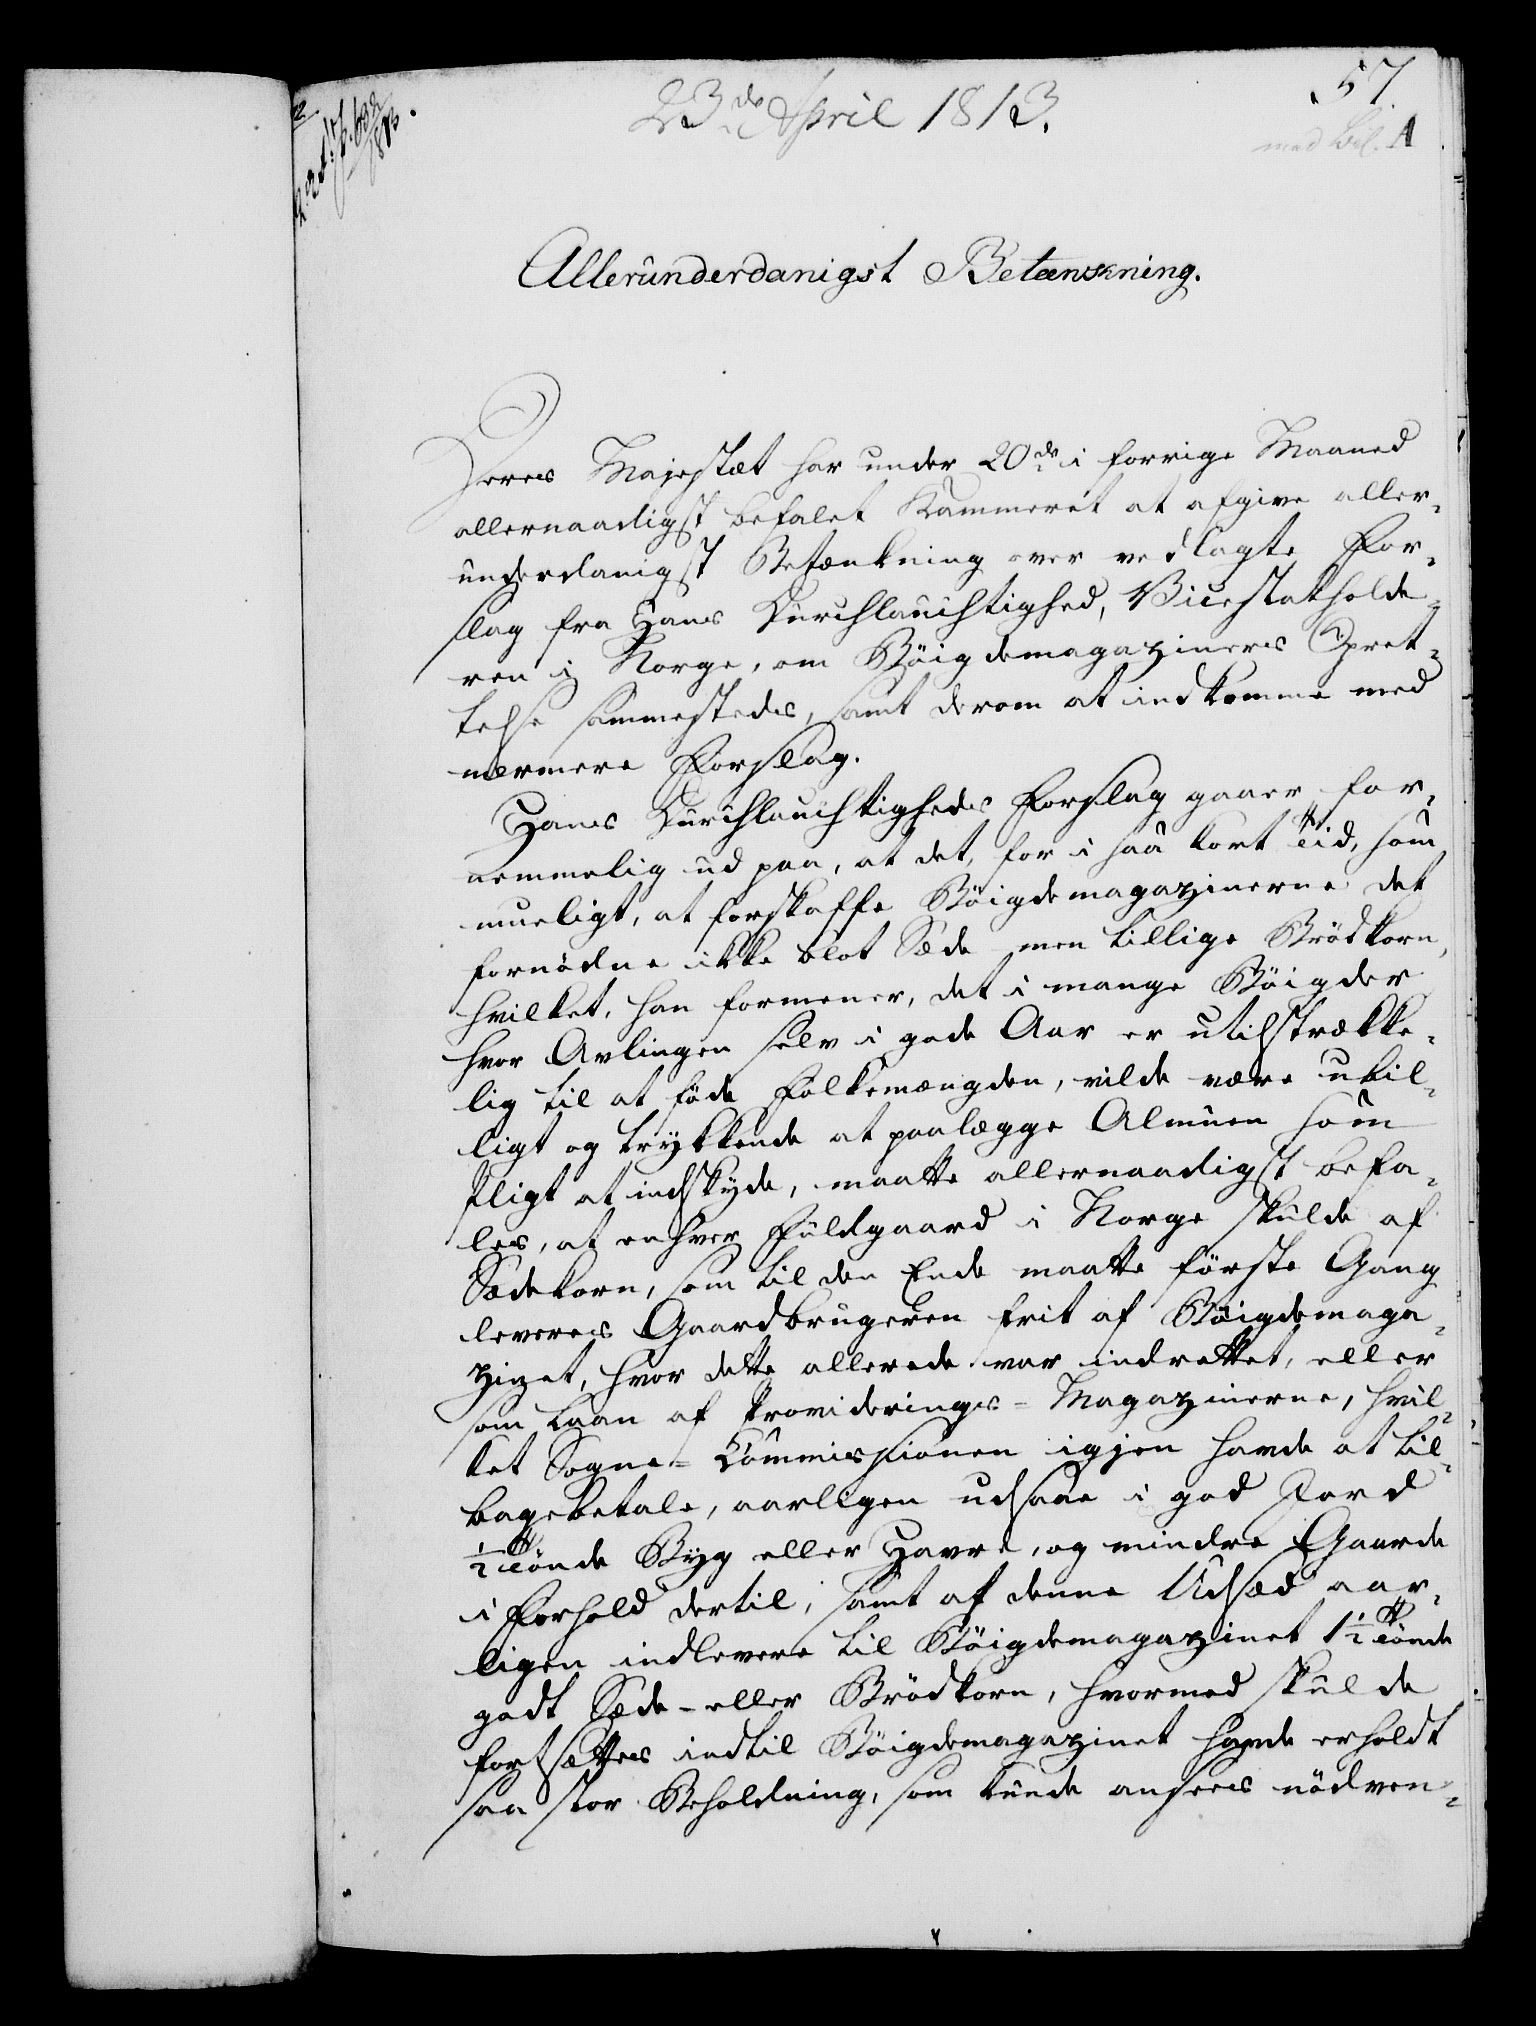 57.
23de April 1813.
med bil. A
Allerunderdanigst Betænkning.
Deres Majestæt har under 20de i forrige Maaned
allernaadigst befalet Kammeret at afgive aller-
underdanigst Betænkning over vedlagte For-
slag fra Hans Durchlauchtighed, Vicestatholde-
ren i Norge, om Böigdemagaziners Opret-
telse sammestedes, samt derom at indkomme med
nærmere Forslag.
Hans Durchlauchtigheds Forslag gaaer for-
nemmelig ud paa, at det, for i saa kort Tid, som
mueligt, at forskaffe Böigdemagazinerne det
fornödne ikke blot Sæde men tillige Brödkorn,
hvilket, han formener, det i mange Böigder
hvor Avlingen selv i gode Aar er utilstrække-
lig til at föde Folkemængden, vilde være ubil-
ligt og trykkende at paalægge Almuen som
Pligt at indskyde, maatte allernaadigst befa-
les, at enhver Fuldgaard i Norge skulde af
Sædekorn, som til den Ende maatte förste Gang
leveres Gaardbrugeren frit af Böigdemaga-
zinet, hvor dette allerede var indrettet, eller
som Laan af Providerings-Magazinerne, hvil-
ket Sogne-Commissionen igjen havde at til-
bagebetale, aarligen udsaae i god Jord
½ Tönde Byg eller Havre, og mindre Gaarde
i Forhold dertil, samt af denne Udsæd aar-
ligen indlevere til Böigdemagazinet 1½ Tönde
godt Sæde- eller Brödkorn, hvormed skulde
fortsættes indtil Böigdemagazinet havde erholdt
saa stor Beholdning, som kunde ansees nödven-